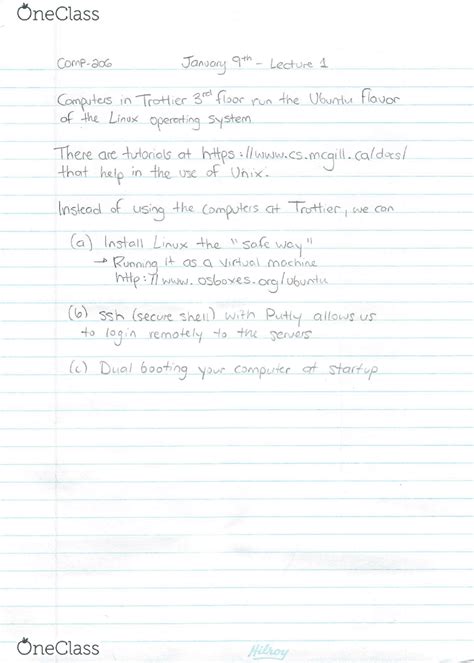 OneClass
Comp-206 January 9th - Lecture 1
Computers in Trottier 3rd floor run the Ubuntu flavor
of the Linux operating system
There are tutorials at https://www.cs.mcgill.ca/docs/
that help in the use of Unix.
Instead of using the computers at Trottier, we can
(a) Install Linux the "safe way"
→ Running it as a virtual machine
http://www.osboxes.org/ubuntu
(b) ssh (secure shell) with Putty allows us
to login remotely to the servers
(c) Dual booting your computer at startup
OneClass
Hilroy